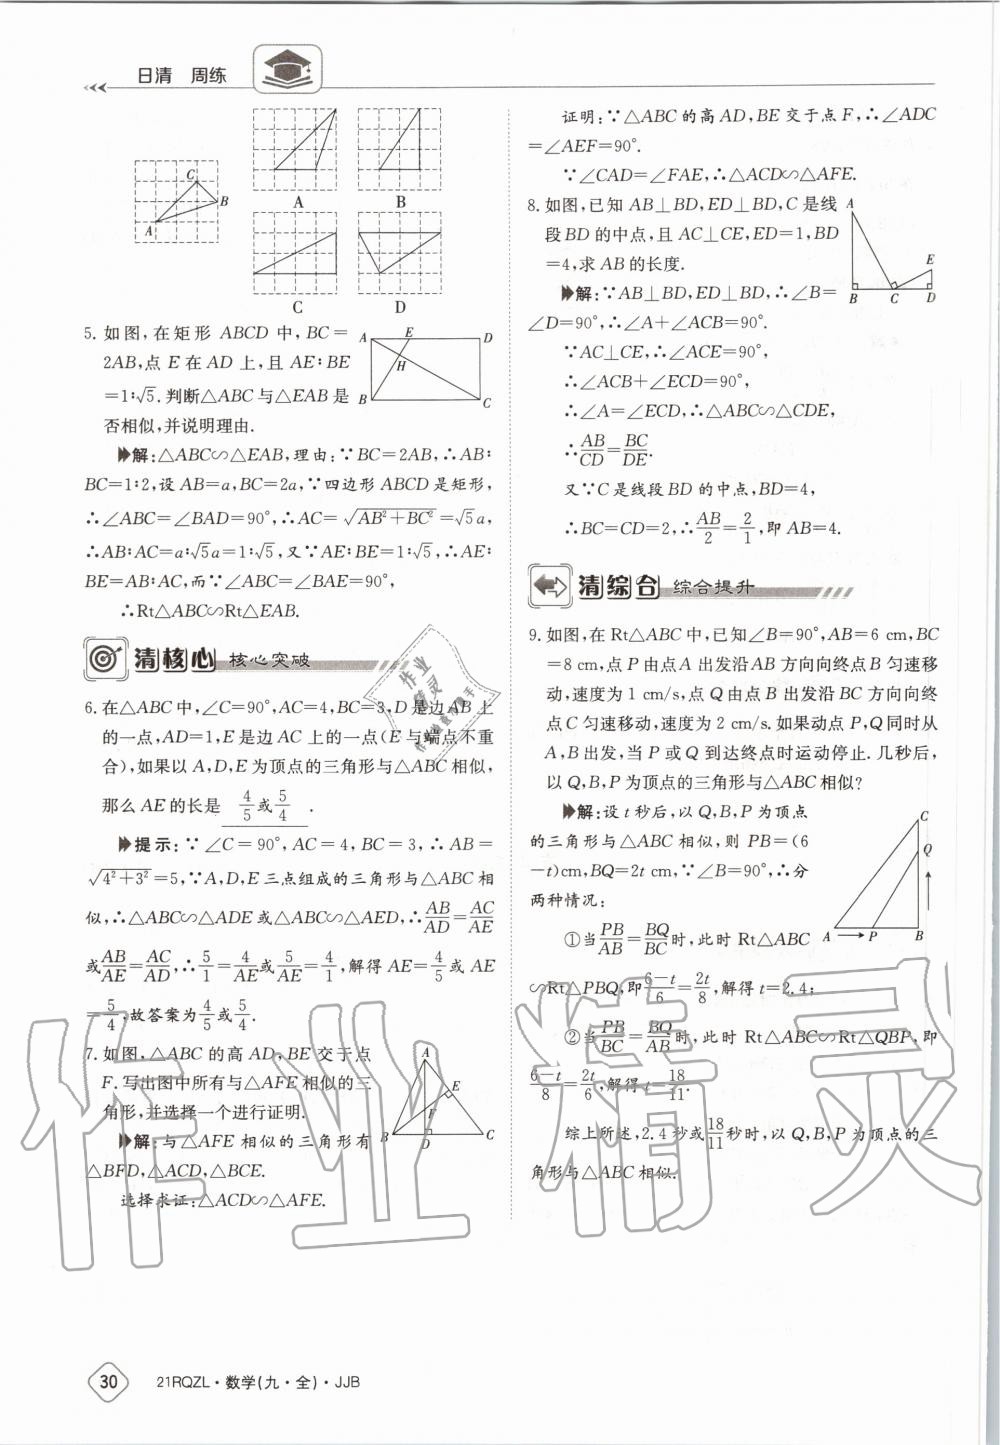 日清 周练
C
B
A
A
B
C
D
5. 如图,在矩形 ABCD 中,BC=
2AB,点 E 在 AD 上,且 AE∶BE
=1∶√5. 判断△ABC 与△EAB 是
否相似,并说明理由.
A E D
H
B C
解:△ABC∽△EAB,理由:∵BC=2AB,∴AB∶
BC=1∶2,设 AB=a,BC=2a,∵四边形 ABCD 是矩形,
∴∠ABC=∠BAD=90°,∴AC=√(AB²+BC²)=√5a,
∴AB∶AC=a∶√5a=1∶√5,又∵AE∶BE=1∶√5,∴AE∶
BE=AB∶AC,而∵∠ABC=∠BAE=90°,
∴Rt△ABC∽Rt△EAB.
清核心 核心突破
6. 在△ABC 中,∠C=90°,AC=4,BC=3,D 是边 AB 上
的一点,AD=1,E 是边 AC 上的一点(E 与端点不重
合),如果以 A,D,E 为顶点的三角形与△ABC 相似,
那么 AE 的长是 4/5或5/4 .
提示:∵∠C=90°,AC=4,BC=3,∴AB=
√(4²+3²)=5,∵A,D,E 三点组成的三角形与△ABC 相
似,∴△ABC∽△ADE 或△ABC∽△AED,∴AB/AD=AC/AE
或AB/AE=AC/AD,∴5/1=4/AE或5/AE=4/1,解得 AE=4/5或 AE
=5/4,故答案为4/5或5/4.
7. 如图,△ABC 的高 AD,BE 交于点
F. 写出图中所有与△AFE 相似的三
角形,并选择一个进行证明.
A
E
F
B D C
解:与△AFE 相似的三角形有
△BFD,△ACD,△BCE.
选择求证:△ACD∽△AFE.
证明:∵△ABC 的高 AD,BE 交于点 F,∴∠ADC
=∠AEF=90°.
∵∠CAD=∠FAE,∴△ACD∽△AFE.
8. 如图,已知 AB⊥BD,ED⊥BD,C 是线
段 BD 的中点,且 AC⊥CE,ED=1,BD
=4,求 AB 的长度.
A
E
B C D
解:∵AB⊥BD,ED⊥BD,∴∠B=
∠D=90°,∴∠A+∠ACB=90°.
∵AC⊥CE,∴∠ACE=90°,
∴∠ACB+∠ECD=90°,
∴∠A=∠ECD,∴△ABC∽△CDE,
∴AB/CD=BC/DE.
又∵C 是线段 BD 的中点,BD=4,
∴BC=CD=2,∴AB/2=2/1,即 AB=4.
清综合 综合提升
9. 如图,在 Rt△ABC 中,已知∠B=90°,AB=6 cm,BC
=8 cm,点 P 由点 A 出发沿 AB 方向向终点 B 匀速移
动,速度为 1 cm/s,点 Q 由点 B 出发沿 BC 方向向终
点 C 匀速移动,速度为 2 cm/s. 如果动点 P,Q 同时从
A,B 出发,当 P 或 Q 到达终点时运动停止. 几秒后,
以 Q,B,P 为顶点的三角形与△ABC 相似?
解:设 t 秒后,以 Q,B,P 为顶点
的三角形与△ABC 相似,则 PB=(6
-t)cm,BQ=2t cm,∵∠B=90°,∴分
两种情况:
C
Q
A P B
①当PB/AB=BQ/BC时,此时 Rt△ABC
∽Rt△PBQ,即(6-t)/6=2t/8,解得 t=2.4;
②当PB/BC=BQ/AB时,此时 Rt△ABC∽Rt△QBP,即
(6-t)/8=2t/6,解得 t=18/11.
综上所述,2.4 秒或18/11秒时,以 Q,B,P 为顶点的三
角形与△ABC 相似.
作业精灵
30 21RQZL·数学(九·全)·JJB